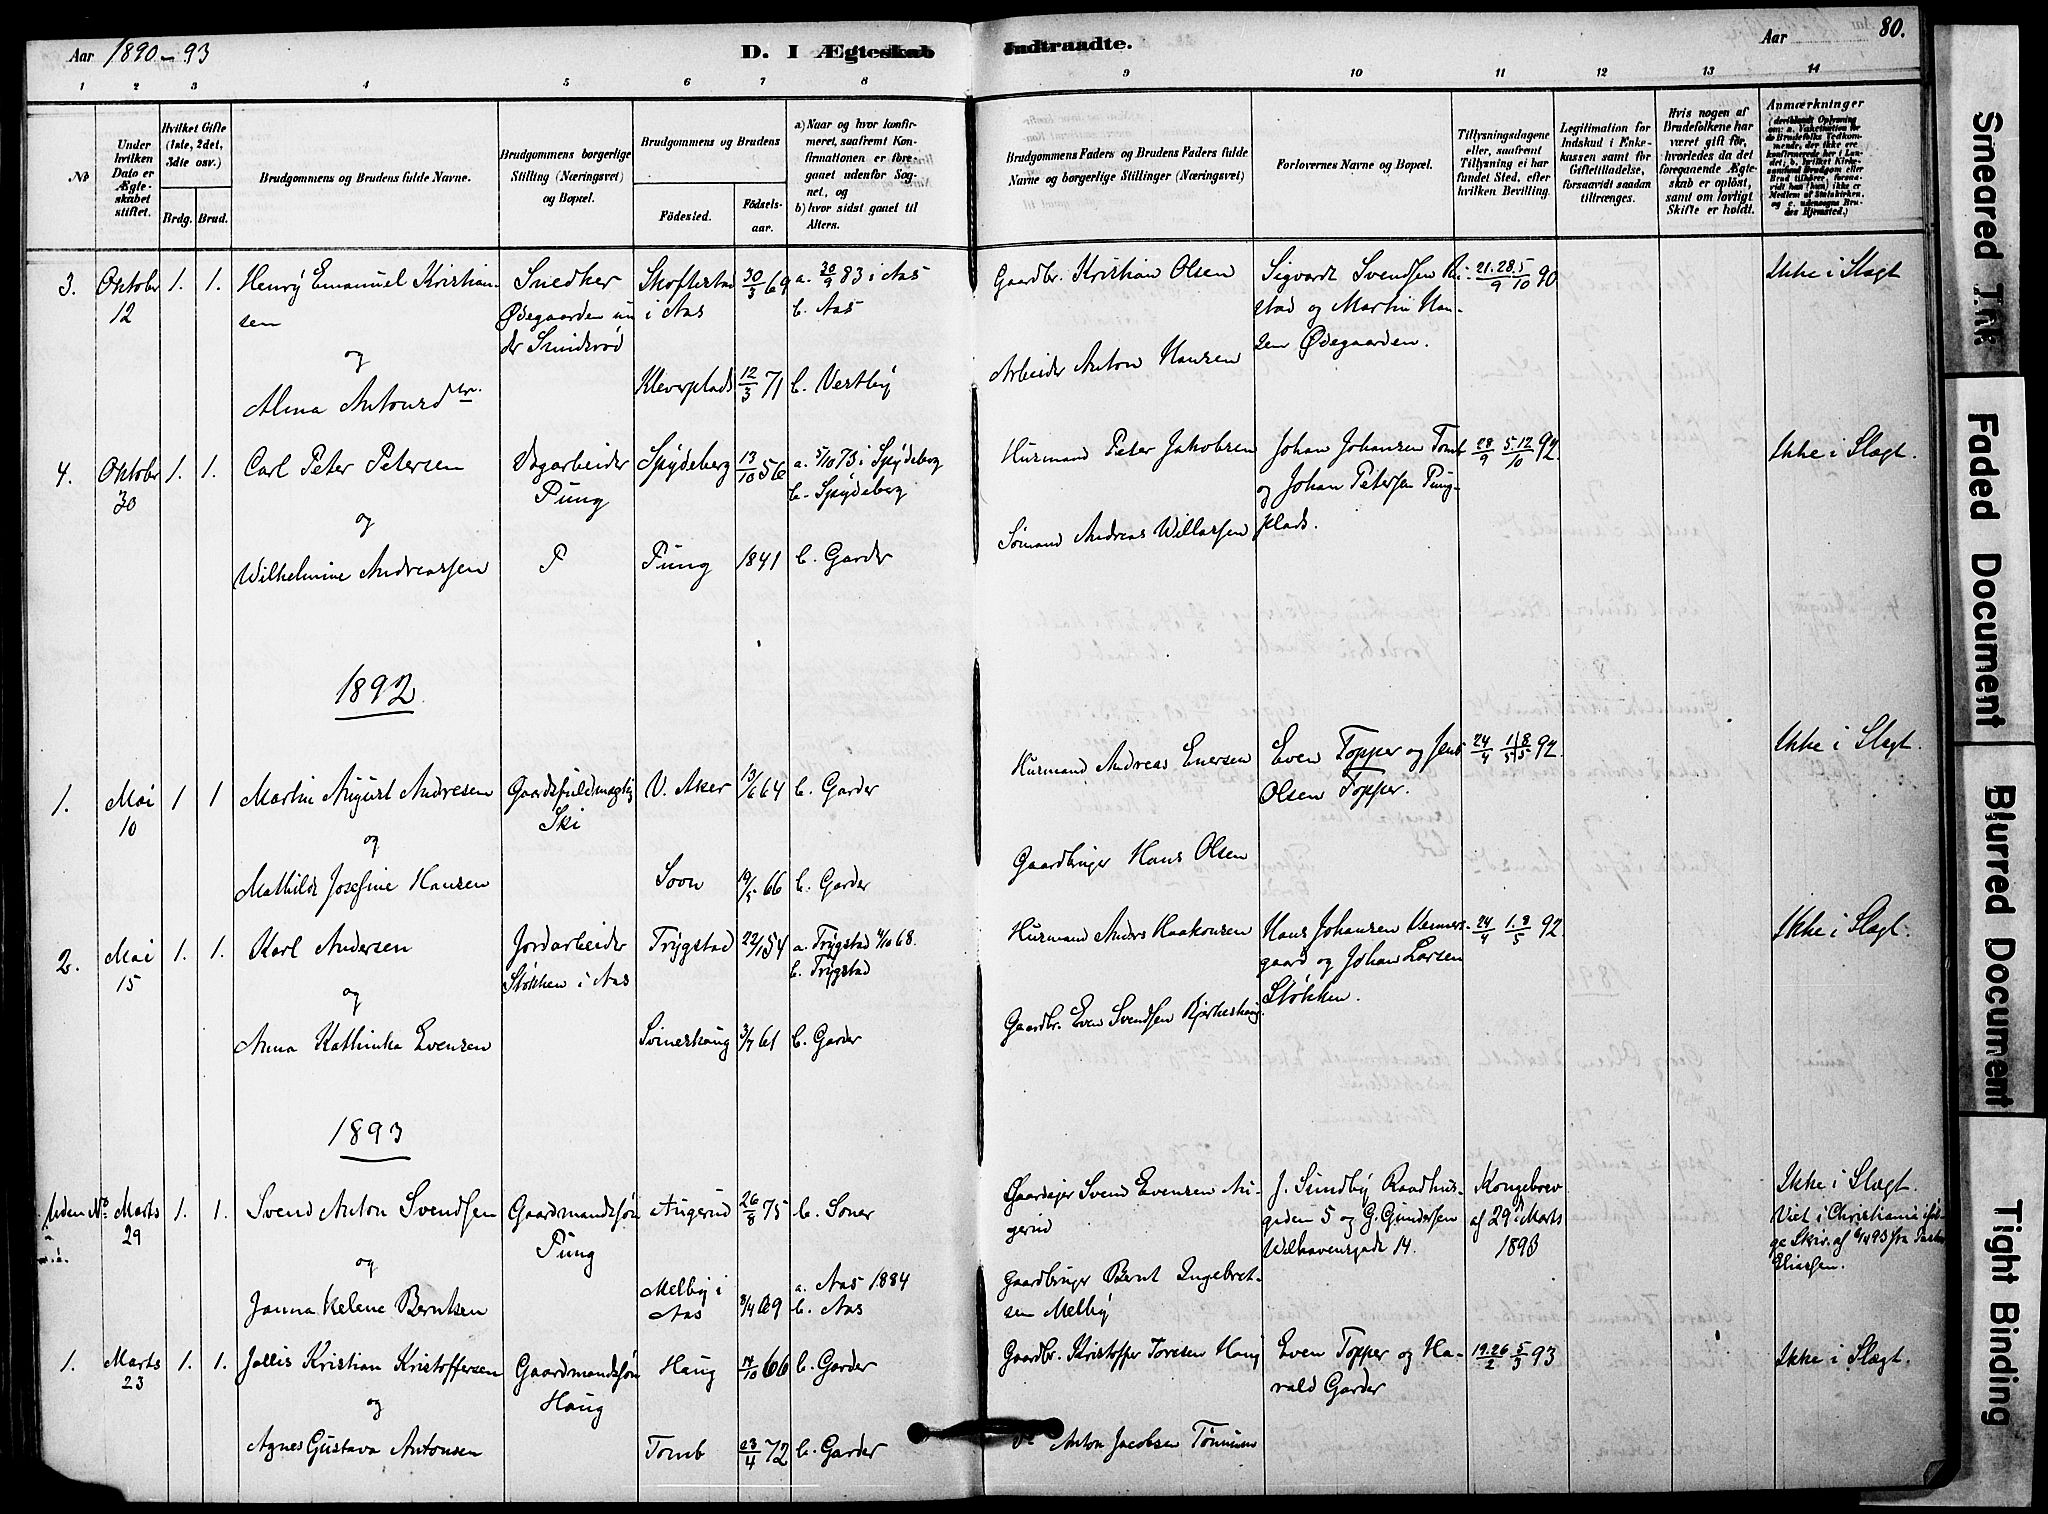 Aar 1890-93
D. I Ægteskab Indtraadte.
Aar 80.
1 2 3 4 5 6 7 8 9 10 11 12 13 14
No
Under hvilken Dato er Ægteskabet stiftet.
Hvilket Gifte (1ste, 2det, 3die osv.)
Brdg. Brud.
Brudgommens og Brudens fulde Navne.
Brudgommens borgerlige Stilling (Næringsvei) og Bopæl.
Brudgommens og Brudens
Fødested. Fødselsaar.
a) Naar og hvor konfirmeret, saafremt Konfirmationen er foregaaet udenfor Sognet, og
b) hvor sidst gaaet til Alters.
Brudgommens Faders og Brudens Faders fulde Navne og borgerlige Stillinger (Næringsvei)
Forlovernes Navne og Bopæl.
Tillysningsdagene eller, saafremt Tillysning ei har fundet Sted, efter hvilken Bevilling.
Legitimation for Indskud i Enkekassen samt for Giftetilladelse, forsaavidt saadan tiltrænges.
Hvis nogen af Brudefolkene har været gift før, hvorledes da det foregaaende Ægteskab er opløst, samt om lovligt Skifte er holdt.
Anmærkninger
3. Oktober 12 1. 1. Henry Emanuel Kristiansen
Snedker Ødegaarden under Sunderød
Skoftestad i Aas 30/3 69 a. 30/9 83 i Aas
b. Aas
Gaardbr. Kristian Olsen
Sigvardt Svendsen Ristad og Martin Hansen Ødegaarden.
21. 28/9 5/10 90
Ikke i Slægt
og
Alma Antonsdtr.
Kleverplads 12/3 71 b. Vestby
Arbeider Anton Hansen
4. Oktober 30 1. 1. Carl Peter Petersen
Dagarbeider Pung
Spydeberg 13/10 56 a. 5/10 73 i Spydeberg
b. Spydeberg
Husmand Peter Jakobsen
Johan Johansen Tomb og Johan Petersen Pungplads.
28/9 5.12/10 92.
Ikke i Slægt.
og
Wilhelmine Andreassen
Pung 1841 b. Garder
Sømand Andreas Willassen
1892.
1. Mai 10 1 1 Martin August Andresen
Gaardsfuldmægtig Ski
V. Aker 13/6 64 b. Garder
Husmand Andreas Enersen
Even Topper og Jens Olsen Topper.
24/4 1/5 8/5 92.
Ikke i Slægt.
og
Mathilde Josefine Hansen
Soon 19/5 66 b. Garder
Gaardbruger Hans Olsen
2. Mai 15 1. 1. Karl Andersen
Jordarbeider Støkken i Aas
Trygstad 22/1 54 a. Trygstad 4/10 68.
b. Trygstad
Husmand Anders Haakonsen
Hans Johansen Vennersgaard og Johan Larsen Støkken.
24/4 1.8/5 92.
Ikke i Slægt.
og
Anna Kathinka Evensen
Svinerhaug 3/7 61 b. Garder
Gaardbr. Even Svendsen
1893
Uden No. Marts 29 1. 1. Svend Anton Svendsen
Gaardmandssøn Pung
Augerud 26/8 75 b. Soner
Gaardejer Svend Evensen Augerud
J. Sundby Raadhusgaden 5 og G. Gundersen Wilhavensgade 14.
Kongebrev af 29 Marts 1893
Ikke i Slægt.
Viet i Christiania ifølge Skriv. af 4/4 93 fra Eliassen.
og
Janna Helene Berntsen
Melby i Aas 8/4 69 a. Aas 1884
b. Aas
Gaardbruger Bernt Ingebretsen Melby
1. Marts 23 1. 1. Jallis Kristian Kristoffersen
Gaardmandssøn Haug
Haug 14/10 66 b. Garder
Gaardbr. Kristoffer Toresen Haug
Even Topper og Harald Garder
19. 26/2 5/3 93
Ikke i Slægt.
og
Agnes Gustava Antonsen
Tomb 23/4 72 b. Garder
Anton Jacobsen
Smeared Ink
Faded Document
Blurred Document
Tight Binding